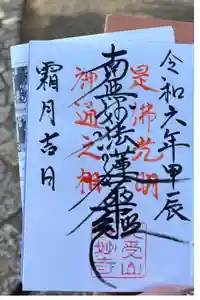 令和六年甲辰
是佛光明
南無妙法蓮華経
神通之相
霜月吉日